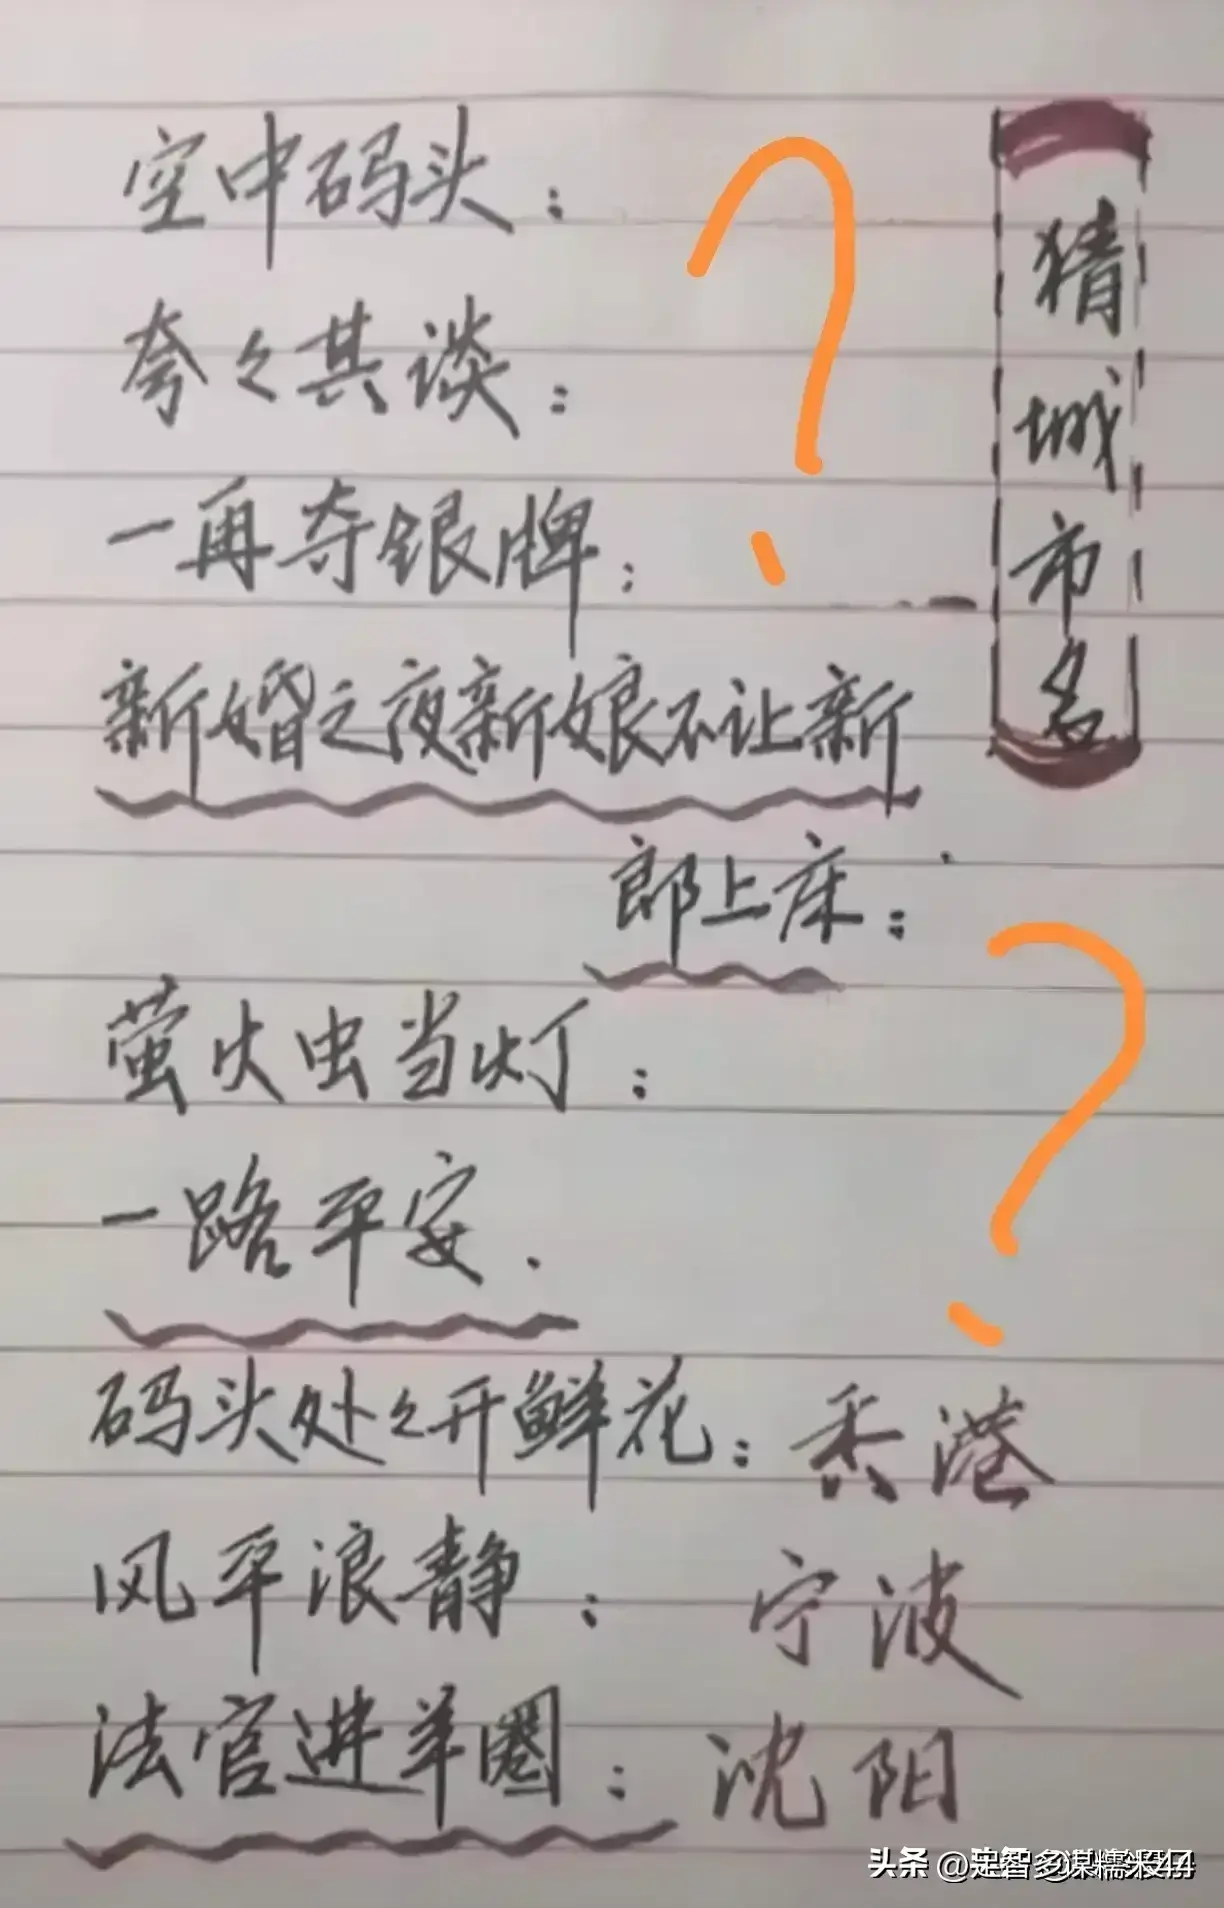 空中码头：
夸々其谈：
一再夺银牌：
新婚之夜新娘不让新
郎上床：
萤火虫当灯：
一路平安.
码头处々开鲜花：香港
风平浪静：宁波
法官进羊圈：沈阳
猜城市名
头条